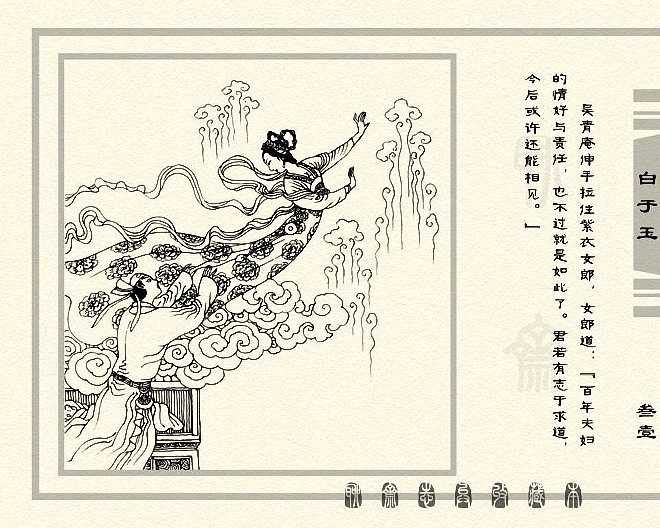 白于玉
叁壹
吴青庵伸手拉住紫衣女郎，女郎道：「百年夫妇
的情好与责任，也不过就是如此了。君若有志于求道，
今后或许还能相见。」